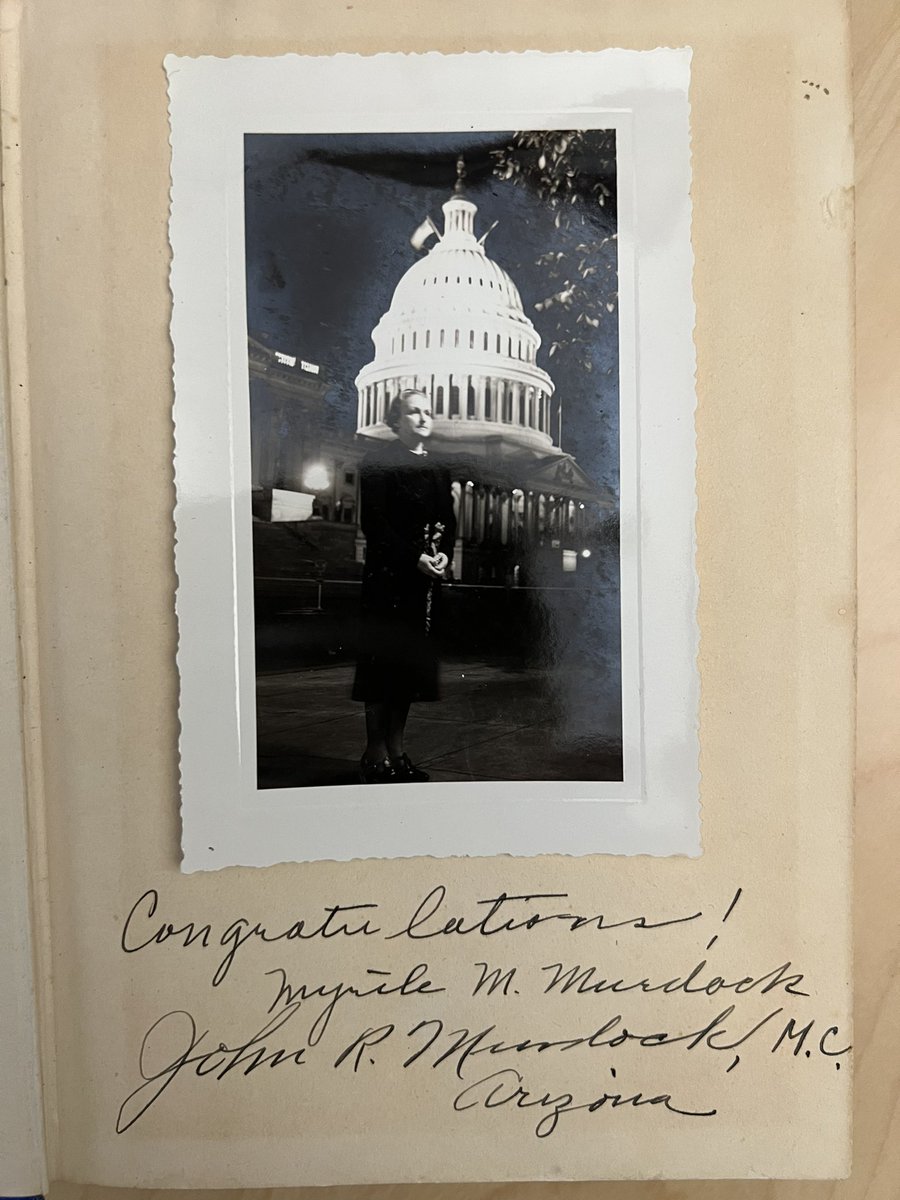 Congratulations!
Myrtle M. Murdock
John R. Murdock, M.C.
Arizona